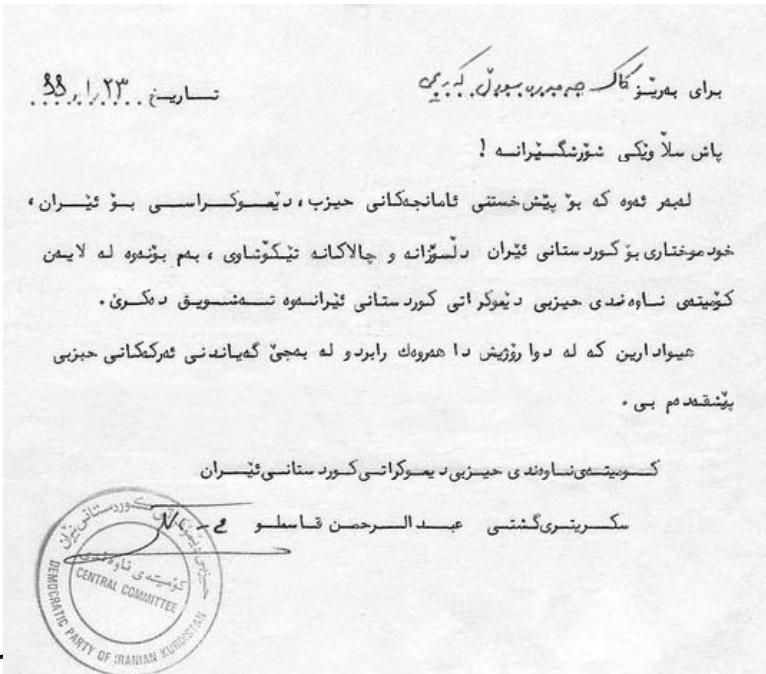 برای بەڕێز کاک
تــاریـخ ۲۳ر۱ر
پاش سڵاوێکی شۆڕشگـێڕانــە !
لەبەر ئەوە کە بۆ پێش خستنی ئامانجەکانی حیزب، دێمـوکـراســی بــۆ ئێــران،
خودموختاری بۆ کوردستانی ئێران دڵسۆزانە و چالاکانە تێکۆشاوی، بەم بۆنەوە لە لایـەن
کۆمیتەی نــاوەندی حیزبی دێموکراتی کوردستانی ئێرانــەوە تــەشــویـق دەکـرێ.
هیوادارین کە لە دوا رۆژیش دا هەروەك رابردو لە بەجێ گەیاندنی ئەرکەکانی حیزبی
پێشقەدەم بی.
کــومیتــەی نــاوەندی حیـزبی دیموکراتـی کوردستانـی ئێــران
سکــریتــری گـشتی عبــد الــرحمـن قـاسملــو
حیزبی دێموکراتی کوردستانی ئێران
کۆمیتەی ناوەندی
CENTRAL COMMITTEE
DEMOCRATIC PARTY OF IRANIAN KURDISTAN